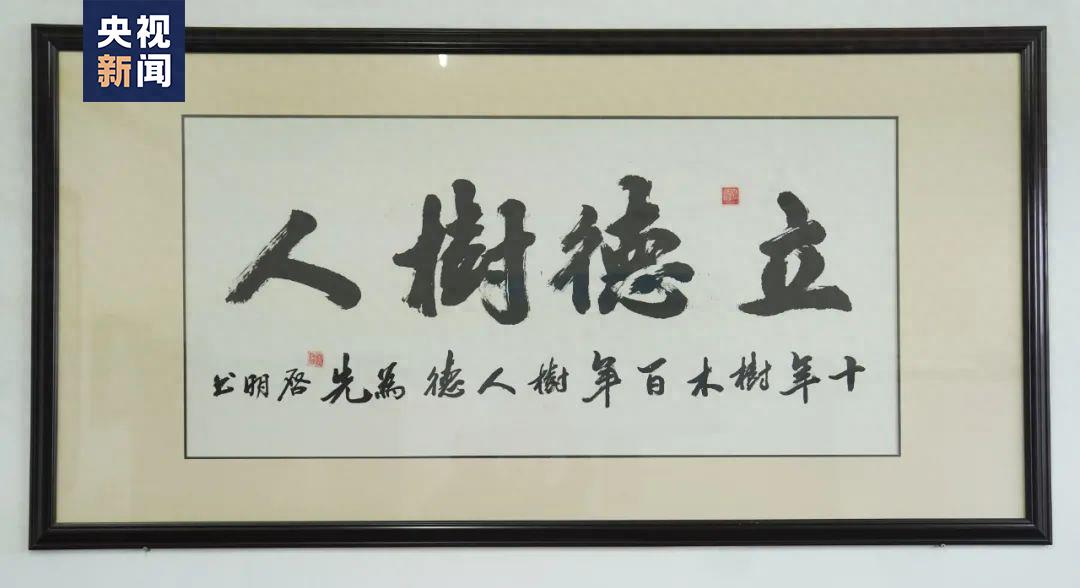 央视
新闻
立德樹人
十年樹木百年樹人德為先啓明书